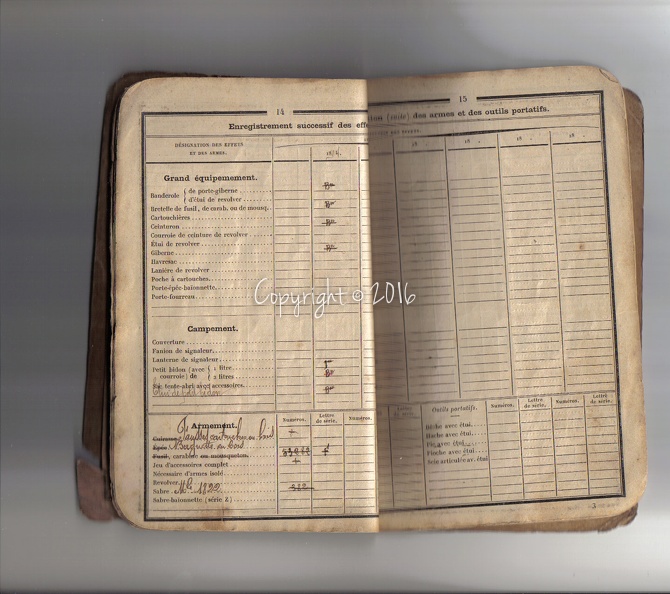 14
Enregistrement successif des effe
DÉSIGNATION DES EFFETS
ET DES ARMES.
Grand équipement.
Banderole { de porte-giberne
d'étui de revolver
Bretelle de fusil, de carab. ou de mousq.
Cartouchières
Ceinturon
Courroie de ceinture de revolver
Étui de revolver
Giberne
Havresac
Lanière de revolver
Poche à cartouches
Porte-épée-baïonnette
Porte-fourreau
Campement.
Couverture
Fanion de signaleur
Lanterne de signaleur
Petit bidon (avec { 1 litre
courroie) de { 2 litres
tente-abri avec accessoires.
Armement.
Numéros.
Lettre de série.
Numéros.
Cuirasse
Épée
en bois
Fusil, carabine ou mousqueton
Jeu d'accessoires complet
Nécessaire d'armes isolé
Revolver
Sabre Mle 1822
Sabre-baïonnette (série Z)
15
tion (suite) des armes et des outils portatifs.
DES EFFETS.
18
18
18
18
Lettre de série.
Outils portatifs.
Numéros.
Lettre de série.
Numéros.
Lettre de série.
Bêche avec étui
Hache avec étui
Pic avec étui
Pioche avec étui
Scie articulée av. étui
Copyright © 2016